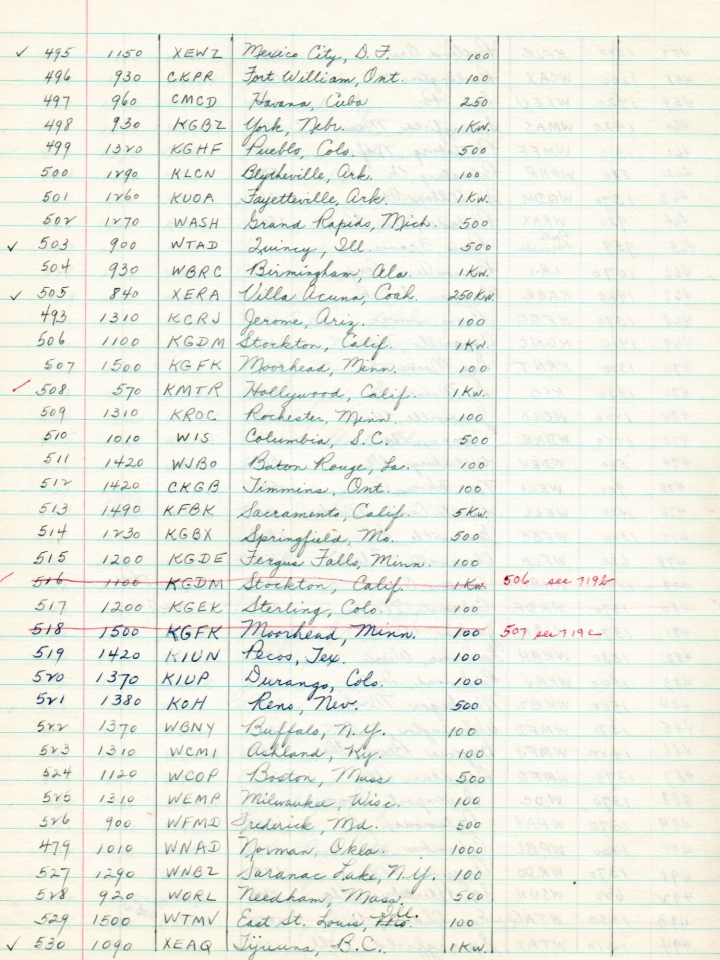 ✓ 495 1150 XEWZ Mexico City, D.F. 100
496 930 CKPR Fort William, Ont. 100
497 960 CMCD Havana, Cuba 250
498 930 KGBZ York, Nebr. 1Kw.
499 1320 KGHF Pueblo, Colo. 500
500 1290 KLCN Blytheville, Ark. 100
501 1260 KUOA Fayetteville, Ark. 1Kw.
502 1270 WASH Grand Rapids, Mich. 500
✓ 503 900 WTAD Quincy, Ill. 500
504 930 WBRC Birmingham, Ala. 1Kw.
✓ 505 840 XERA Villa Acuna, Coah. 250Kw.
493 1310 KCRJ Jerome, Ariz. 100
506 1100 KGDM Stockton, Calif. 1Kw.
507 1500 KGFK Moorhead, Minn. 100
✓ 508 570 KMTR Hollywood, Calif. 1Kw.
509 1310 KROC Rochester, Minn. 100
510 1010 WIS Columbia, S.C. 500
511 1420 WJBO Baton Rouge, La. 100
512 1420 CKGB Timmins, Ont. 100
513 1490 KFBK Sacramento, Calif. 5Kw.
514 1230 KGBX Springfield, Mo. 500
515 1200 KGDE Fergus Falls, Minn. 100
516 1100 KGDM Stockton, Calif. 1Kw. 506 see 719b
517 1200 KGEK Sterling, Colo. 100
518 1500 KGFK Moorhead, Minn. 100 507 see 719c
519 1420 KIUN Pecos, Tex. 100
520 1370 KIUP Durango, Colo. 100
521 1380 KOH Reno, Nev. 500
522 1370 WBNY Buffalo, N.Y. 100
523 1310 WCMI Ashland, Ky. 100
524 1120 WCOP Boston, Mass 500
525 1310 WEMP Milwaukee, Wisc. 100
526 900 WFMD Frederick, Md. 500
479 1010 WNAD Norman, Okla. 1000
527 1290 WNBZ Saranac Lake, N.Y. 100
528 920 WORL Needham, Mass. 500
529 1500 WTMV East St. Louis, Mo. Ill. 100
✓ 530 1090 XEAQ Tijuana, B.C. 1Kw.